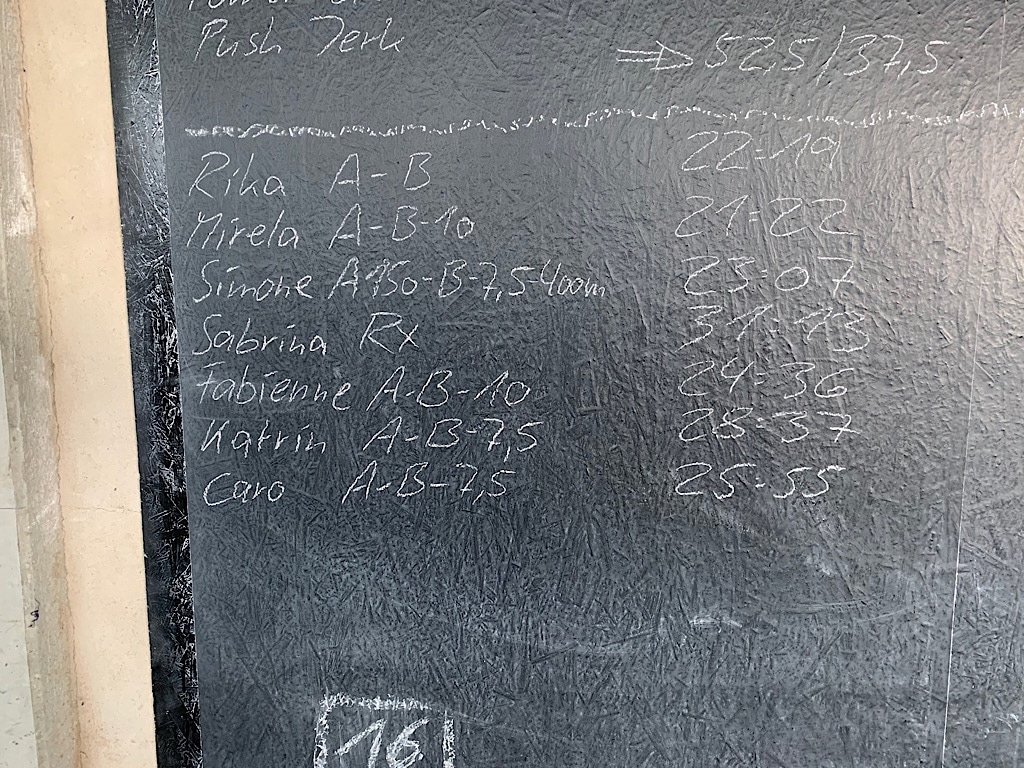 Push Jerk => 52,5/37,5
Rika A-B 22:19
Mirela A-B-10 21:22
Simone A150-B-7,5-400m 23:07
Sabrina Rx 31:13
Fabienne A-B-10 24:36
Katrin A-B-7,5 28:37
Caro A-B-7,5 25:55
16.